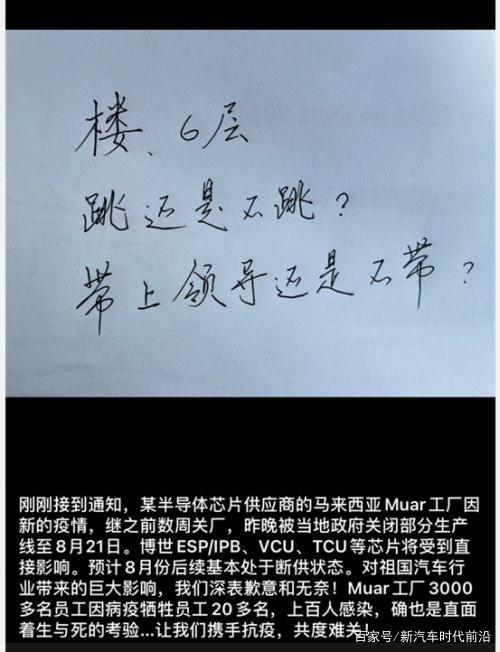 楼、6层
跳还是不跳？
带上领导还是不带？
刚刚接到通知，某半导体芯片供应商的马来西亚Muar工厂因
新的疫情，继之前数周关厂，昨晚被当地政府关闭部分生产
线至8月21日。博世ESP/IPB、VCU、TCU等芯片将受到直
接影响。预计8月份后续基本处于断供状态。对祖国汽车行
业带来的巨大影响，我们深表歉意和无奈！Muar工厂3000
多名员工因病疫牺牲员工20多名，上百人感染，确也是直面
着生与死的考验...让我们携手抗疫，共度难关！
百家号/新汽车时代前沿